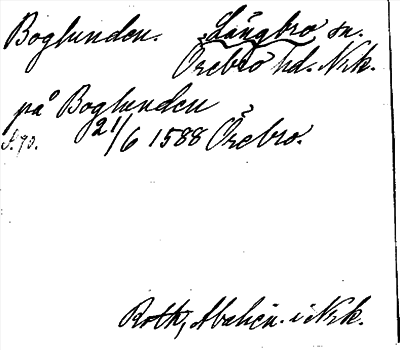 Boglunden. Långbro sn.
Örebro hd. Nrk.
på Boglunden
S. 70. 21/6 1588 Örebro.
Roth, i Nrk.